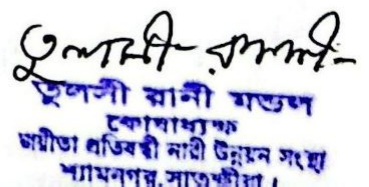 তুলসী রানী
তুলসী রানী মন্ডল
কোষাধ্যক্ষ
প্রতিবন্ধী নারী উন্নয়ন সংস্থা
শ্যামনগর, সাতক্ষীরা।